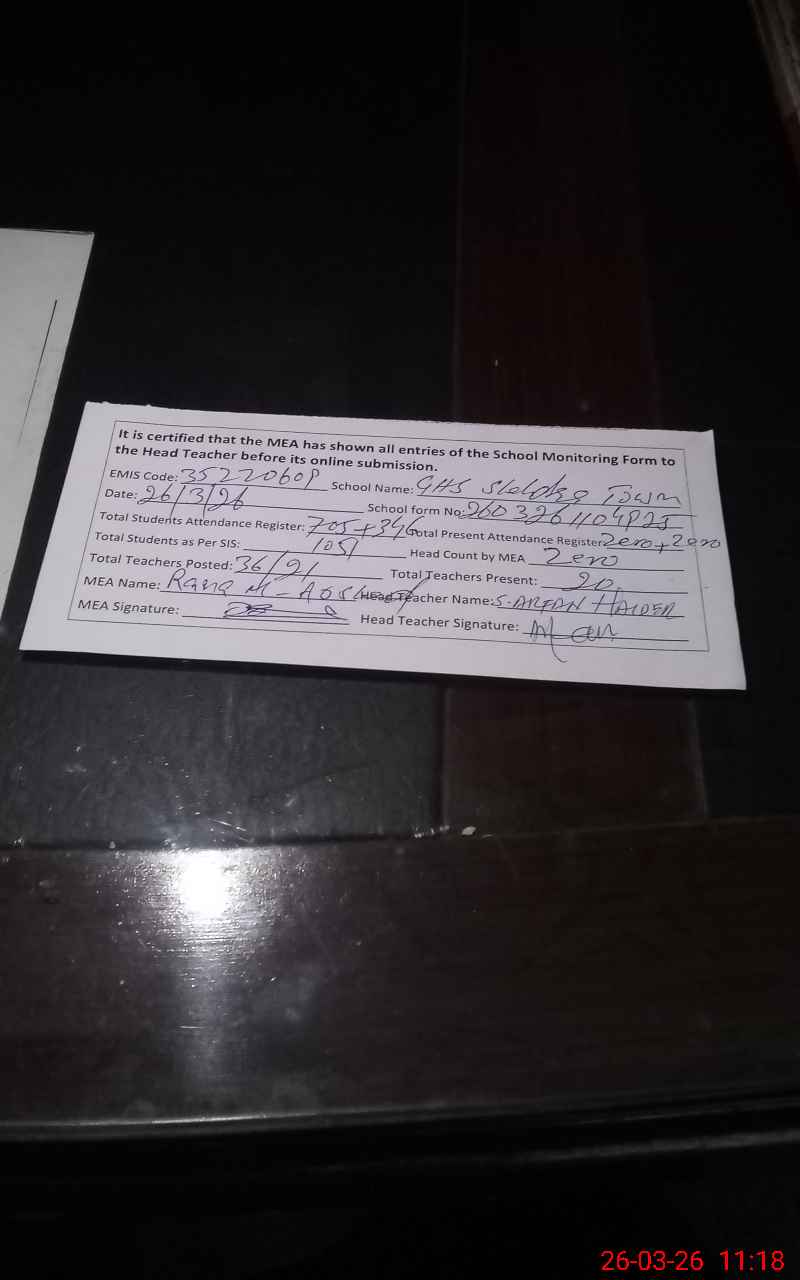 It is certified that the MEA has shown all entries of the School Monitoring Form to
the Head Teacher before its online submission.
EMIS Code: 35220608 School Name: GHS Town
Date: 26/3/26 School form No: 260326110482J
Total Students Attendance Register: 705+346 Total Present Attendance Register: Zero+Zero
Total Students as Per SIS: 1051 Head Count by MEA Zero
Total Teachers Posted: 36/21 Total Teachers Present: 20
MEA Name: Rana M- Head Teacher Name: S. ARFAN HAIDER
MEA Signature: Head Teacher Signature:
26-03-26 11:18